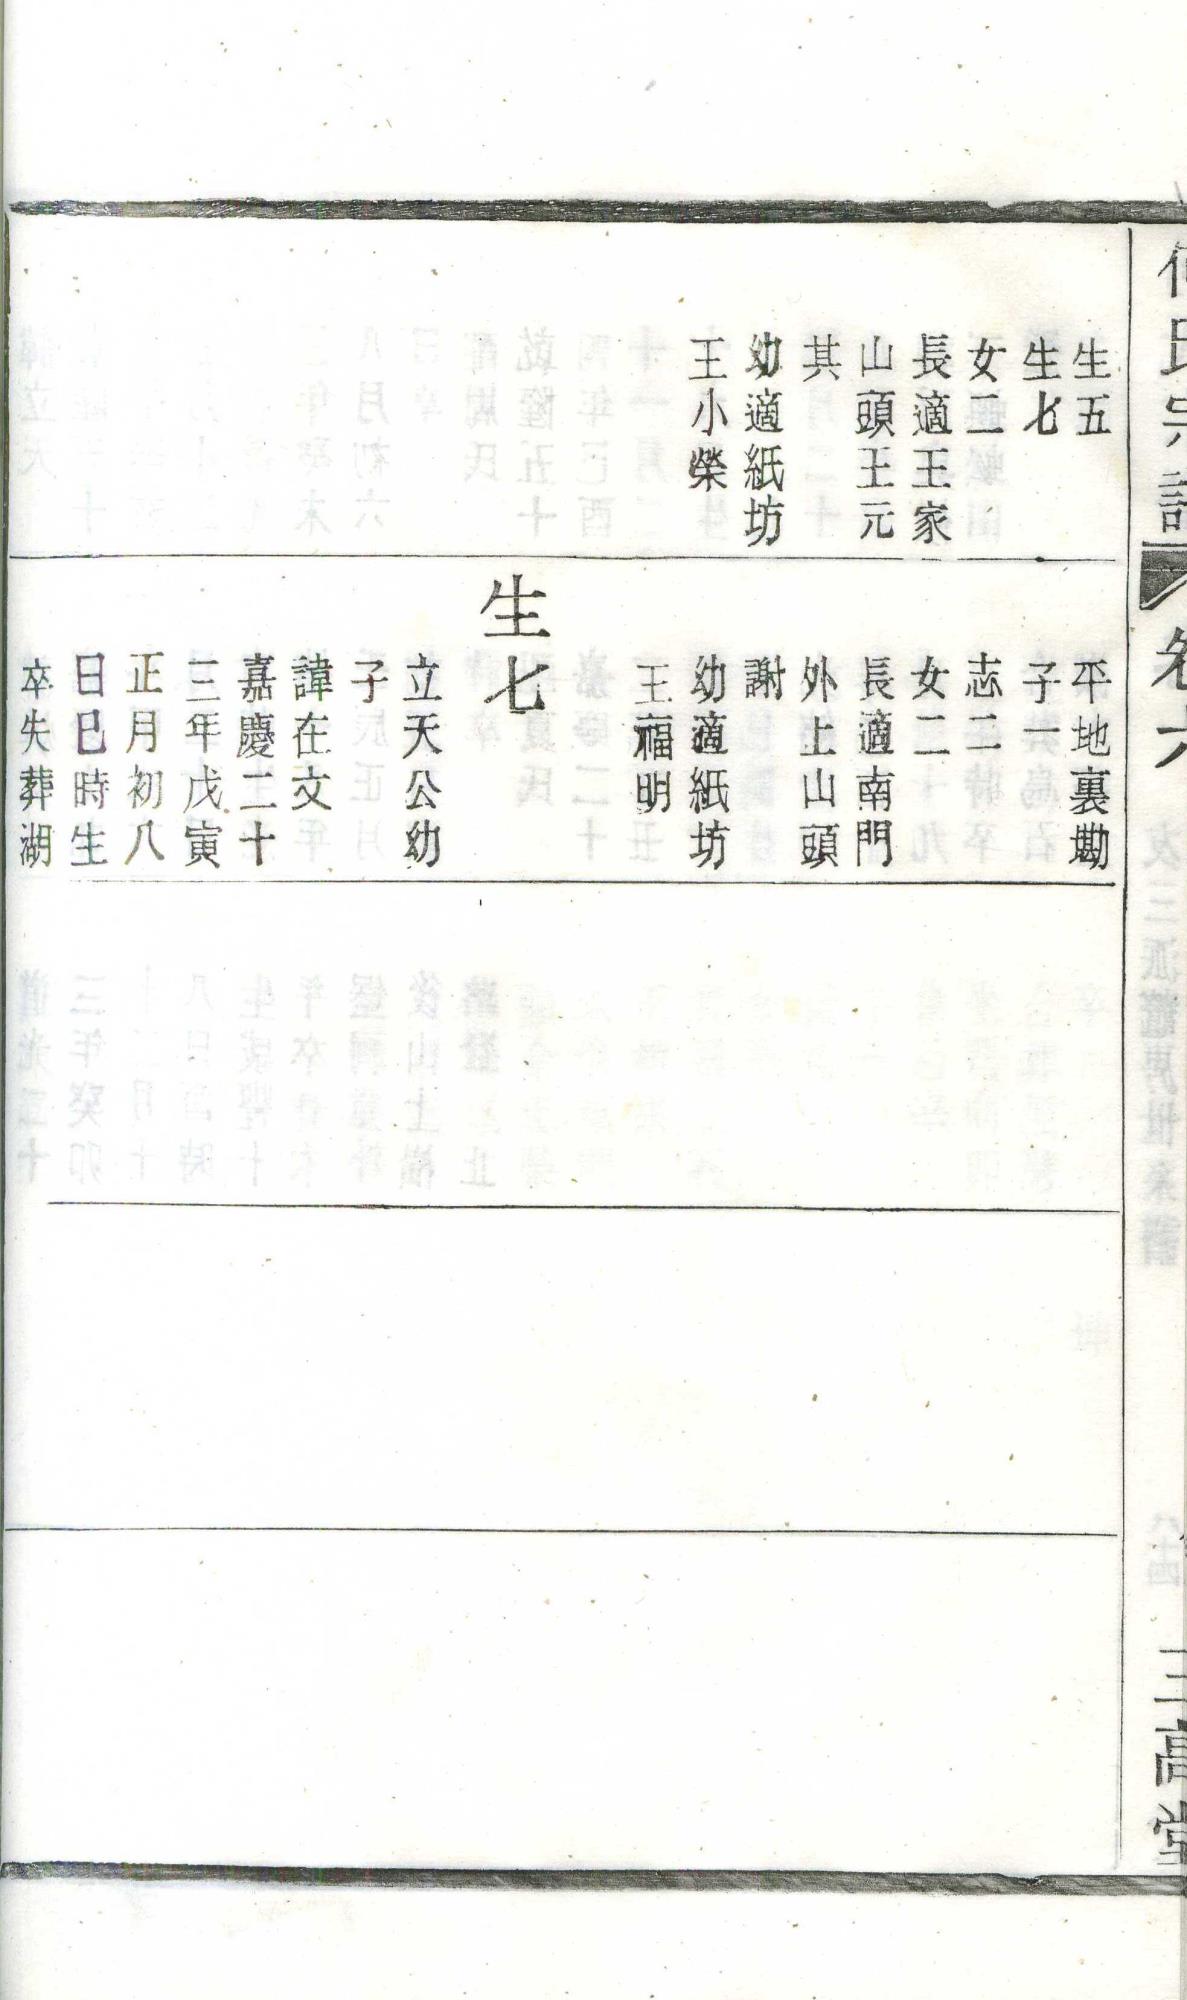 何氏宗譜
卷六
三高堂
生五
生七
女二
長適王家
山頭王元
其
幼適紙坊
王小榮
平地裏墈
子一
志二
女二
長適南門
外上山頭
謝
幼適紙坊
王福明
生七
立天公幼
子
諱在文
嘉慶二十
三年戊寅
正月初八
日巳時生
卒失葬湖